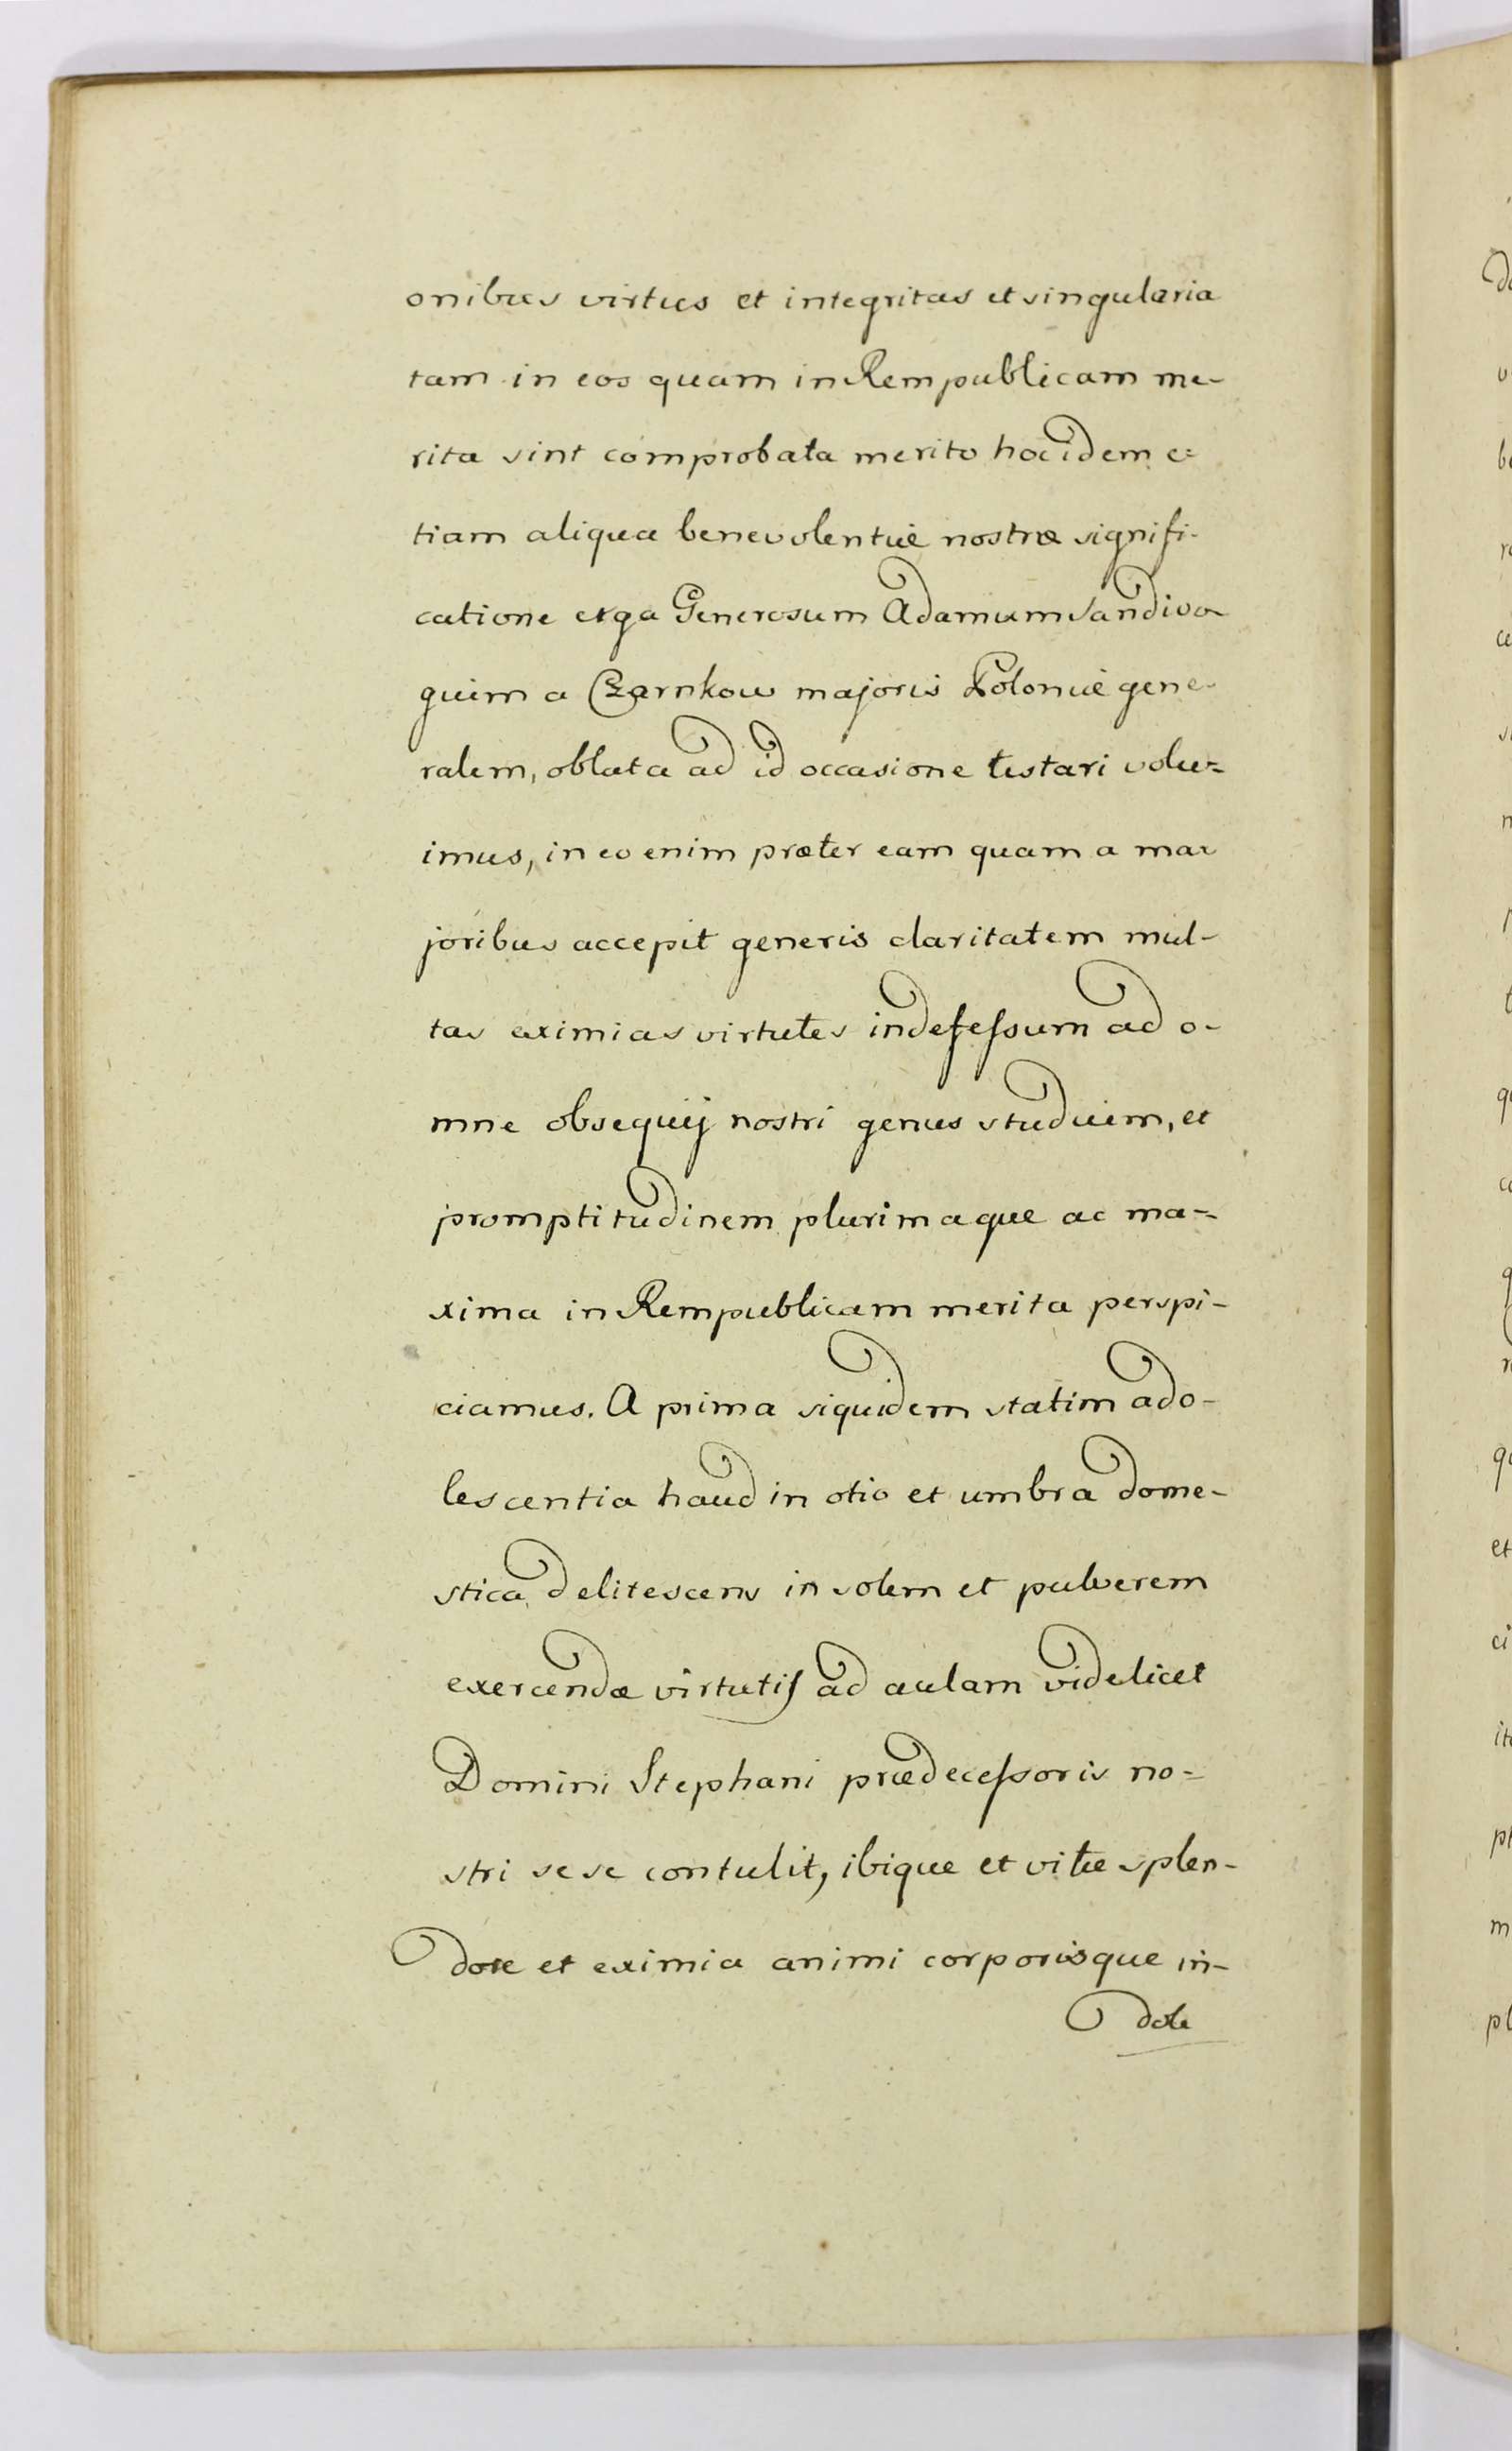 onibus virtus et integritas et singularia
tam in eos quam in Rempublicam me-
rita sint comprobata merito hoc idem e=
tiam aliqua benevolentiæ nostræ signifi-
catione erga Generosum Adamum Sandivo
guim a Czarnkow majoris Poloniæ gene-
ralem, oblata ad id occasione testari volu=
imus, in eo enim præter eam quam a ma-
joribus accepit generis claritatem mul-
tas eximias virtutes indefeſsum ad o-
mne obsequij nostri genus studium, et
promptitudinem plurimaque ac ma-
xima in Rempublicam merita perspi-
ciamus. A prima siquidem statim ado-
lescentia haud in otio et umbra dome-
stica delitescens in solem et pulverem
exercendæ virtutiſ ad aulam videlicet
Domini Stephani prædeceſsoris no=
stri sese contulit, ibique et vitæ splen-
dore et eximia animi corporisque in-
dole